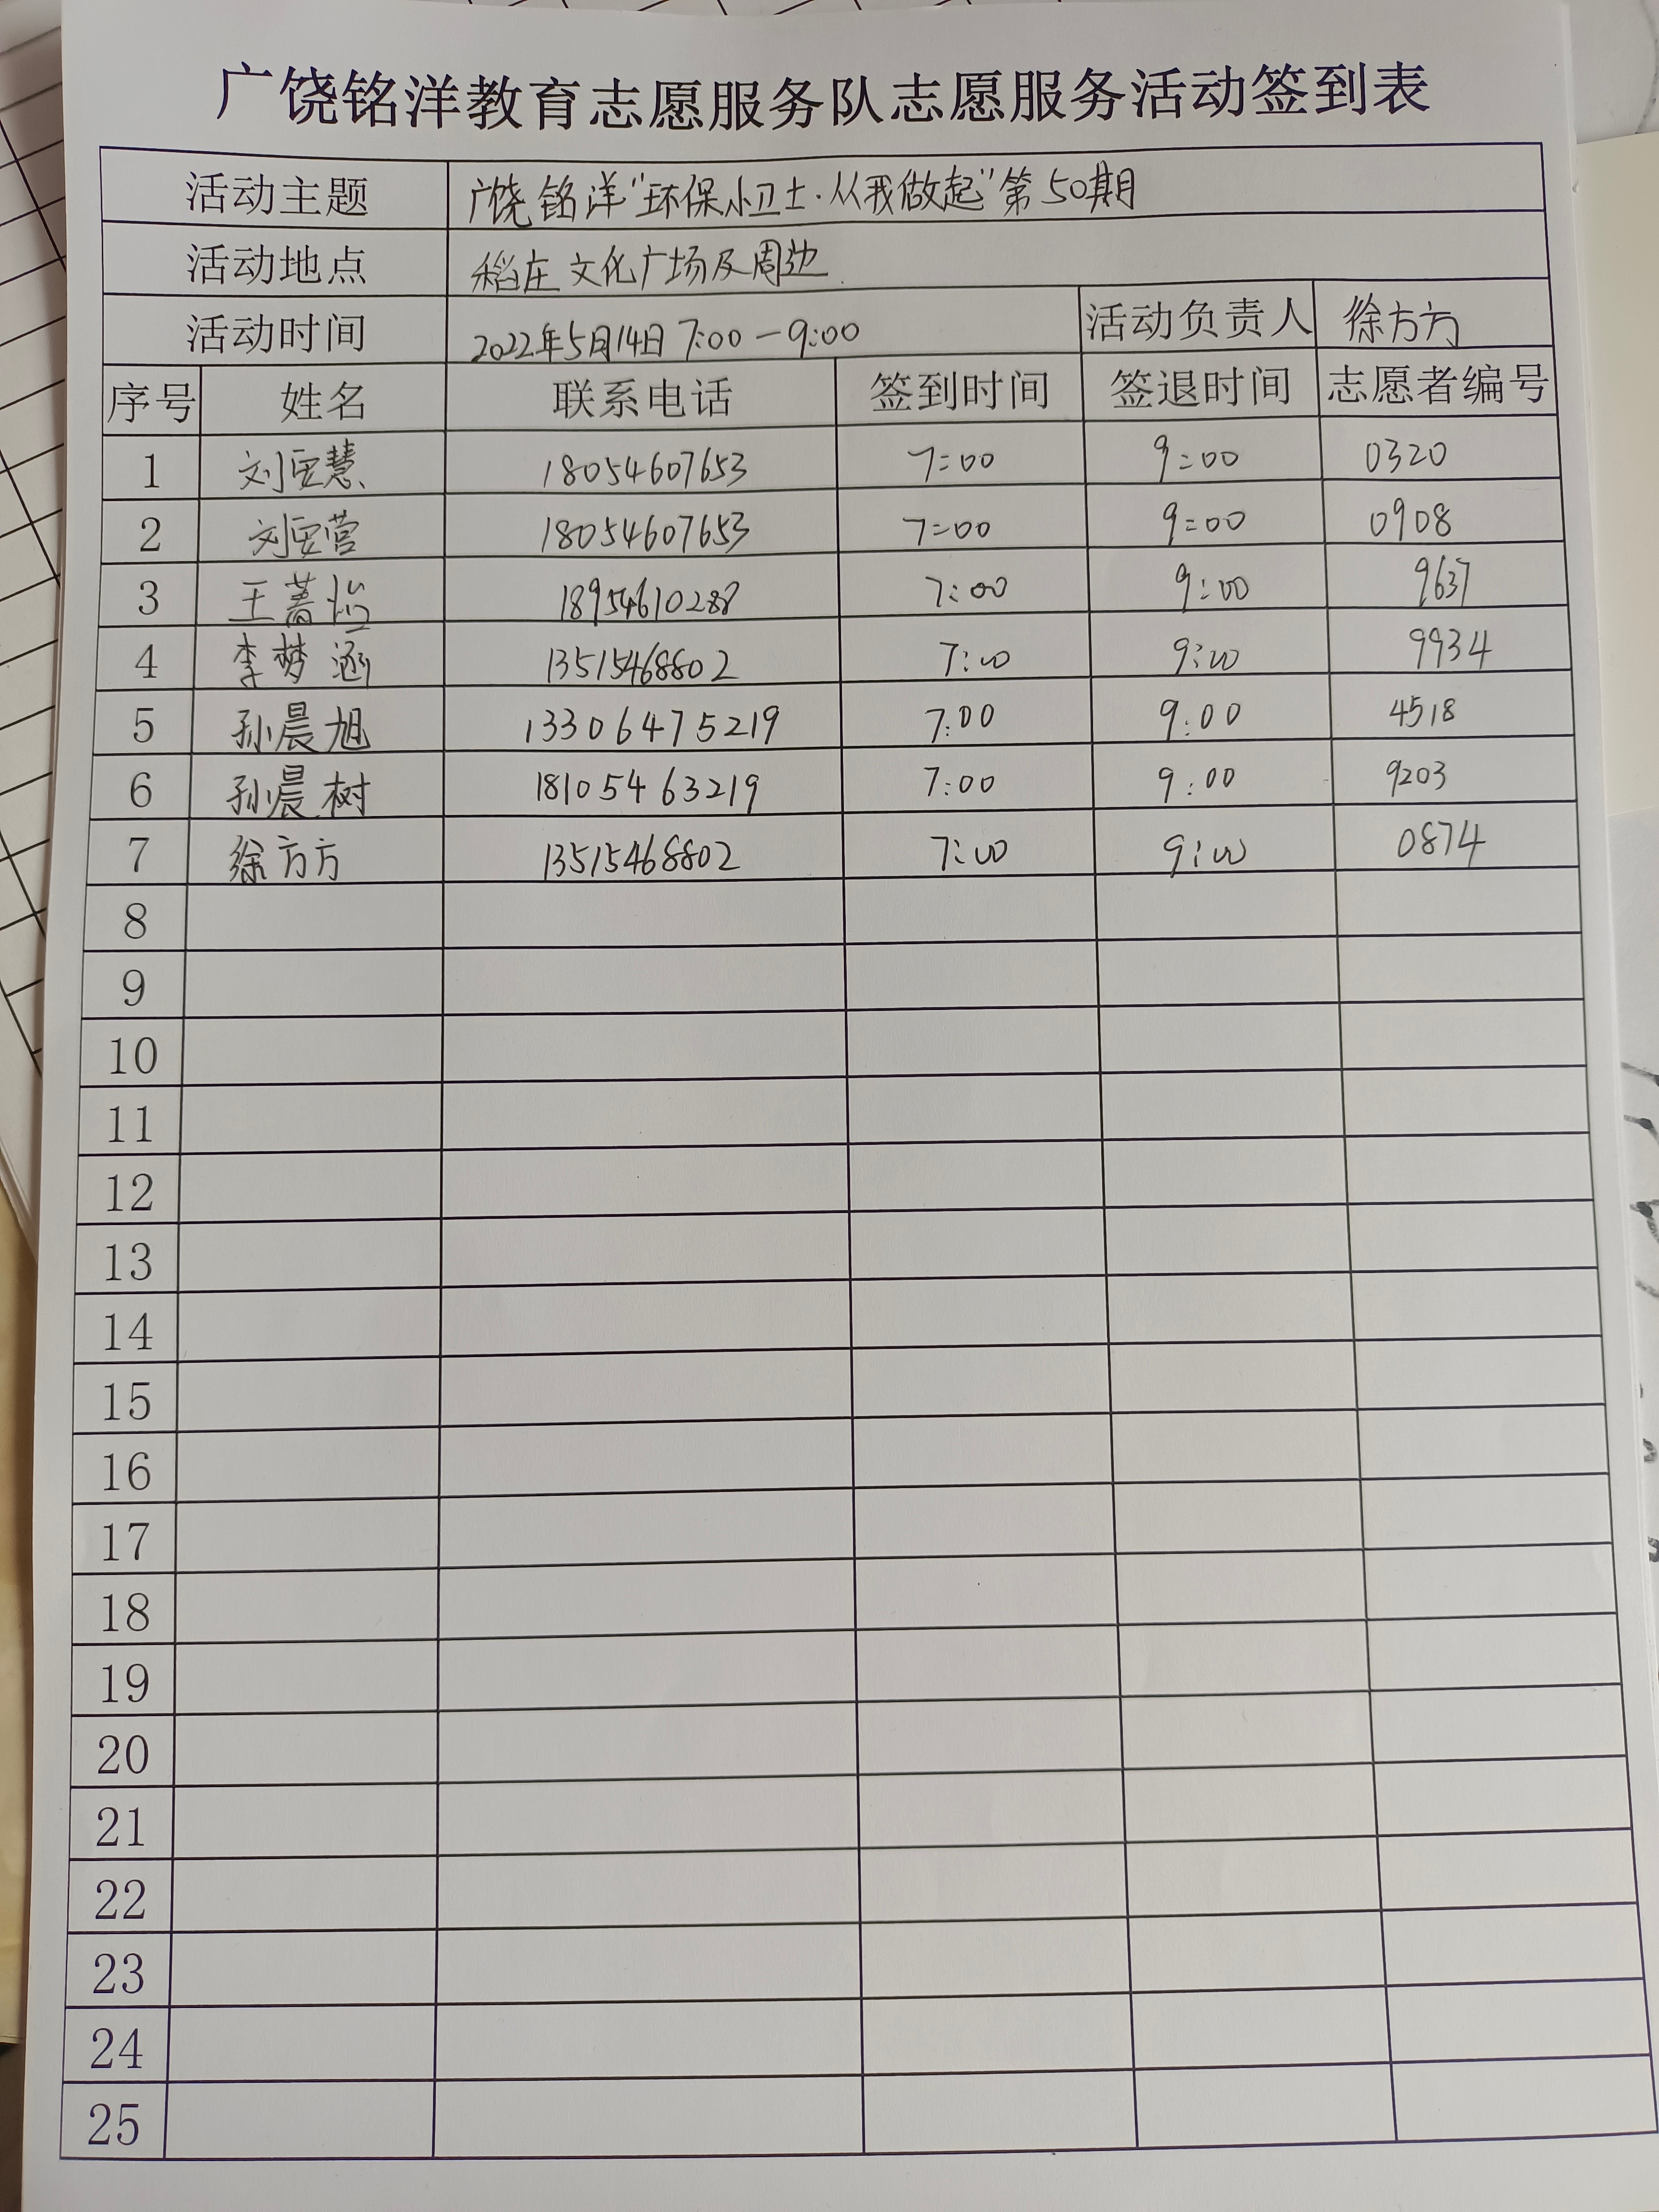 广饶铭洋教育志愿服务队志愿服务活动签到表
活动主题 广饶铭洋"环保小卫士·从我做起"第50期
活动地点 稻庄文化广场及周边
活动时间 2022年5月14日 7:00-9:00 活动负责人 徐方方
序号 姓名 联系电话 签到时间 签退时间 志愿者编号
1 刘安慧 18054607653 7:00 9:00 0320
2 刘安营 18054607653 7:00 9:00 0908
3 王菁怡 18954610288 7:00 9:00 9637
4 李梦涵 13515468802 7:00 9:00 9934
5 孙晨旭 13306475219 7:00 9:00 4518
6 孙晨树 18105463219 7:00 9:00 9203
7 徐方方 13515468802 7:00 9:00 0874
8
9
10
11
12
13
14
15
16
17
18
19
20
21
22
23
24
25